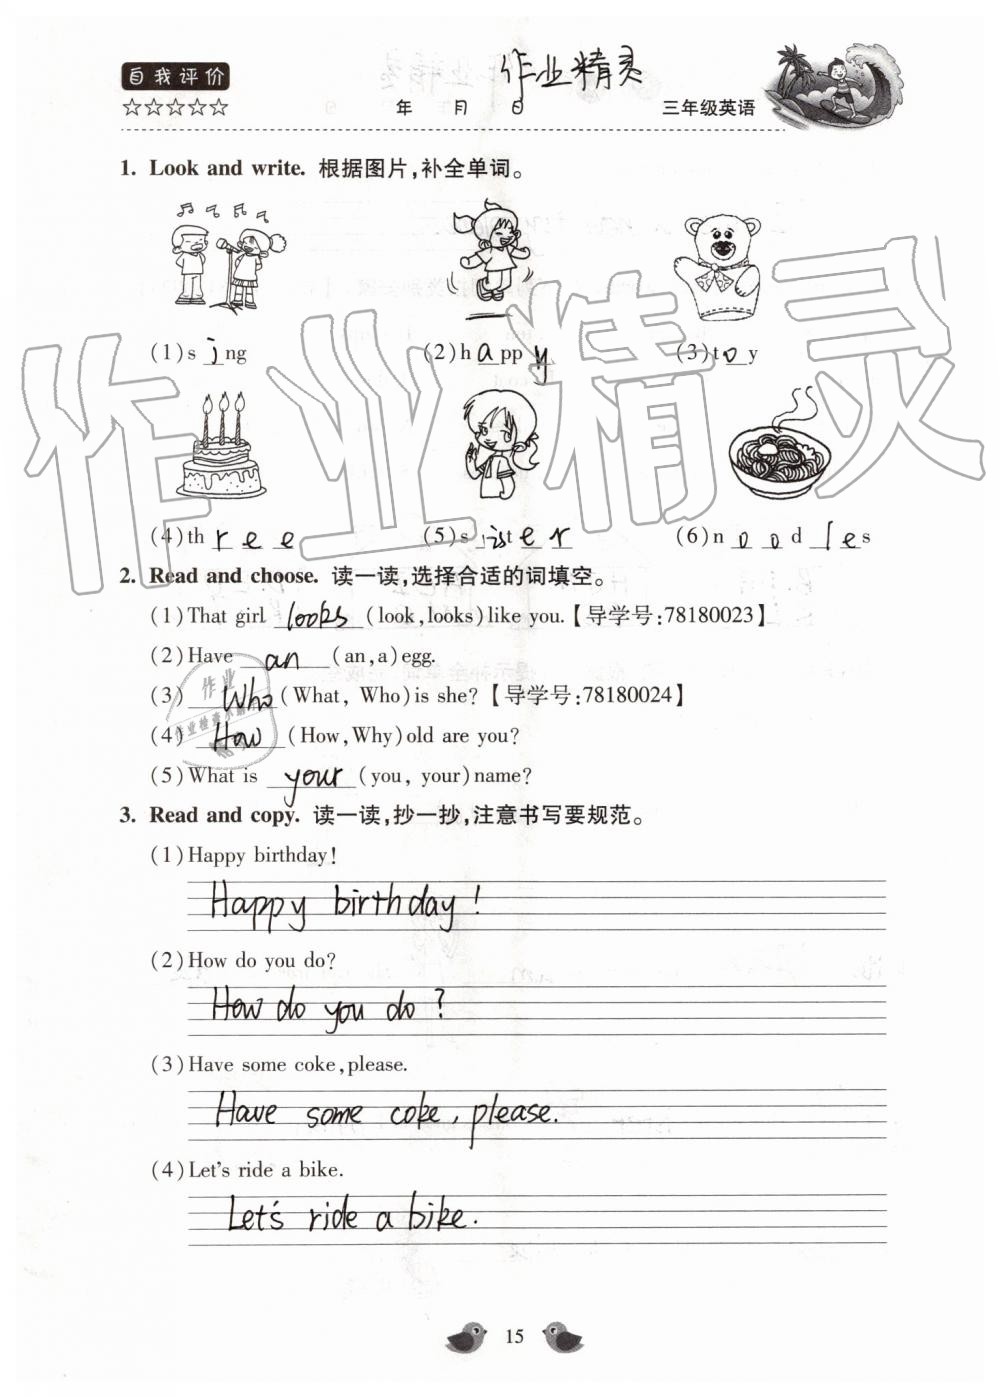 自我评价
☆☆☆☆☆ 年 月 日 作业精灵 三年级英语
1. Look and write. 根据图片,补全单词。
(1)s i ng (2)h a pp y (3)t o y
(4)th r e e (5)s ist e r (6)n o o d l e s
2. Read and choose. 读一读,选择合适的词填空。
(1)That girl looks (look,looks)like you.【导学号:78180023】
(2)Have an (an,a)egg.
(3) Who (What, Who)is she?【导学号:78180024】
(4) How (How,Why)old are you?
(5)What is your (you, your)name?
3. Read and copy. 读一读,抄一抄,注意书写要规范。
(1)Happy birthday!
Happy birthday!
(2)How do you do?
How do you do?
(3)Have some coke,please.
Have some coke, please.
(4)Let's ride a bike.
Let's ride a bike.
15
作业精灵